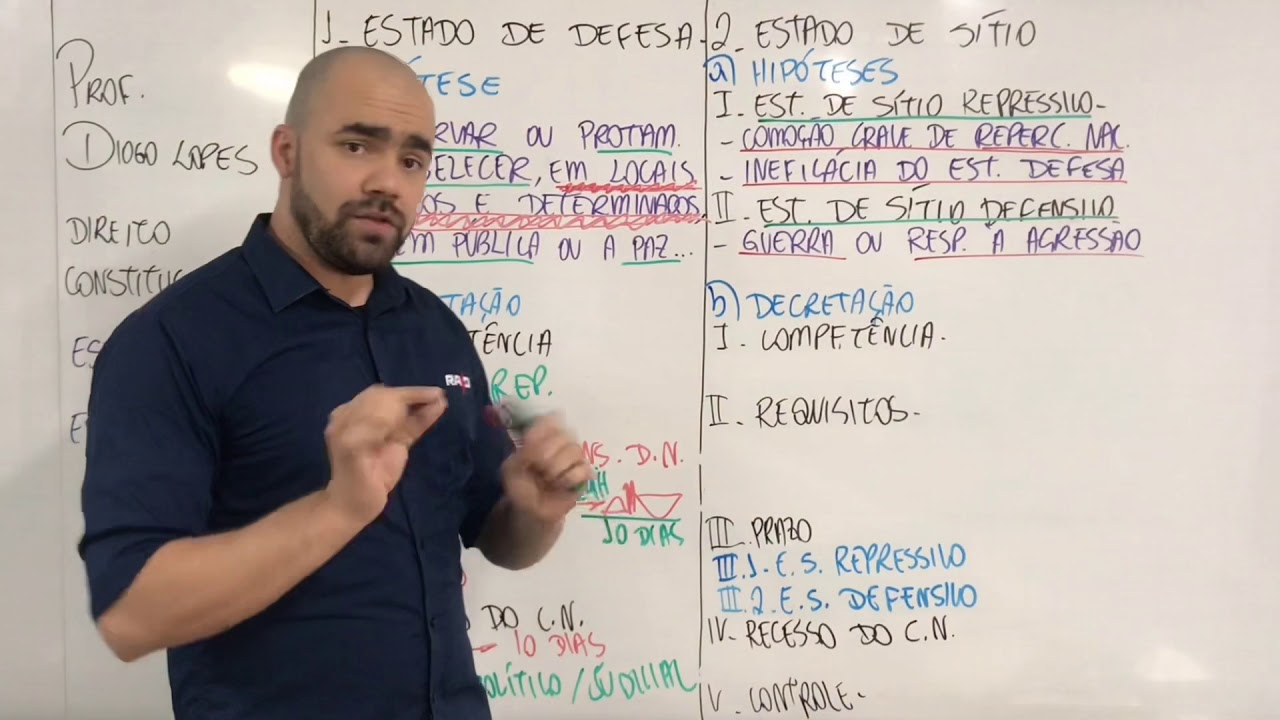 PROF.
DIOGO LOPES
DIREITO
CONSTITUC
ES
E
1- ESTADO DE DEFESA.
ÍTESE
RVAR OU PROTAM.
ELECER, EM LOCAIS
OS E DETERMINADOS
EM PÚBLICA OU A PAZ...
TAÇÃO
TÊNCIA
REP.
NS. D.N.
24H
10 DIAS
DO C.N.
- 10 DIAS
OLÍTICO / JUDICIAL
2- ESTADO DE SÍTIO
a) HIPÓTESES
I- EST. DE SÍTIO REPRESSIVO-
- COMOÇÃO GRAVE DE REPERC. NAC.
- INEFICÁCIA DO EST. DEFESA
II- EST. DE SÍTIO DEFENSIVO
- GUERRA OU RESP. A AGRESSÃO
b) DECRETAÇÃO
I- COMPETÊNCIA.
II- REQUISITOS-
III. PRAZO
III.1- E.S. REPRESSIVO
III.2- E.S. DEFENSIVO
IV- RECESSO DO C.N.
V- CONTROLE-
RA